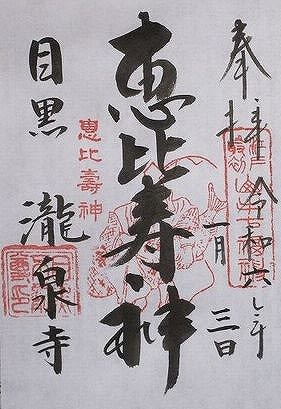 奉拝
令和六年
一月
三日
恵比寿神
恵比壽神
目黒 瀧泉寺